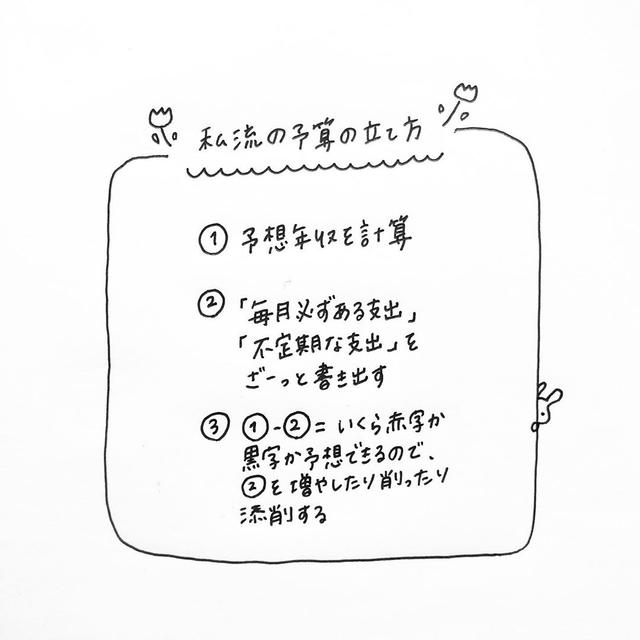 私流の予算の立て方
① 予想年収を計算
② 「毎月必ずある支出」
「不定期な支出」を
ざーっと書き出す
③ ①-②= いくら赤字か
黒字か予想できるので、
②を増やしたり削ったり
添削する